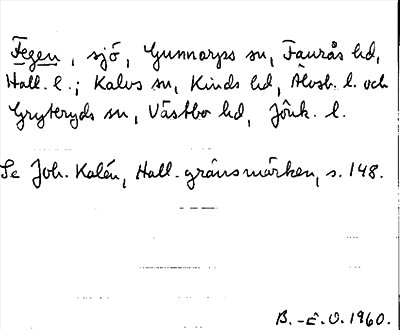 Fegen, sjö, Gunnarps sn, Faurås hd,
Hall. l.; Kalvs sn, Kinds hd, Älvsb. l. och
Gryteryds sn, Västbo hd, Jönk. l.
Se Joh. Kalén, Hall. gränsmärken, s. 148.
B.-E.O. 1960.